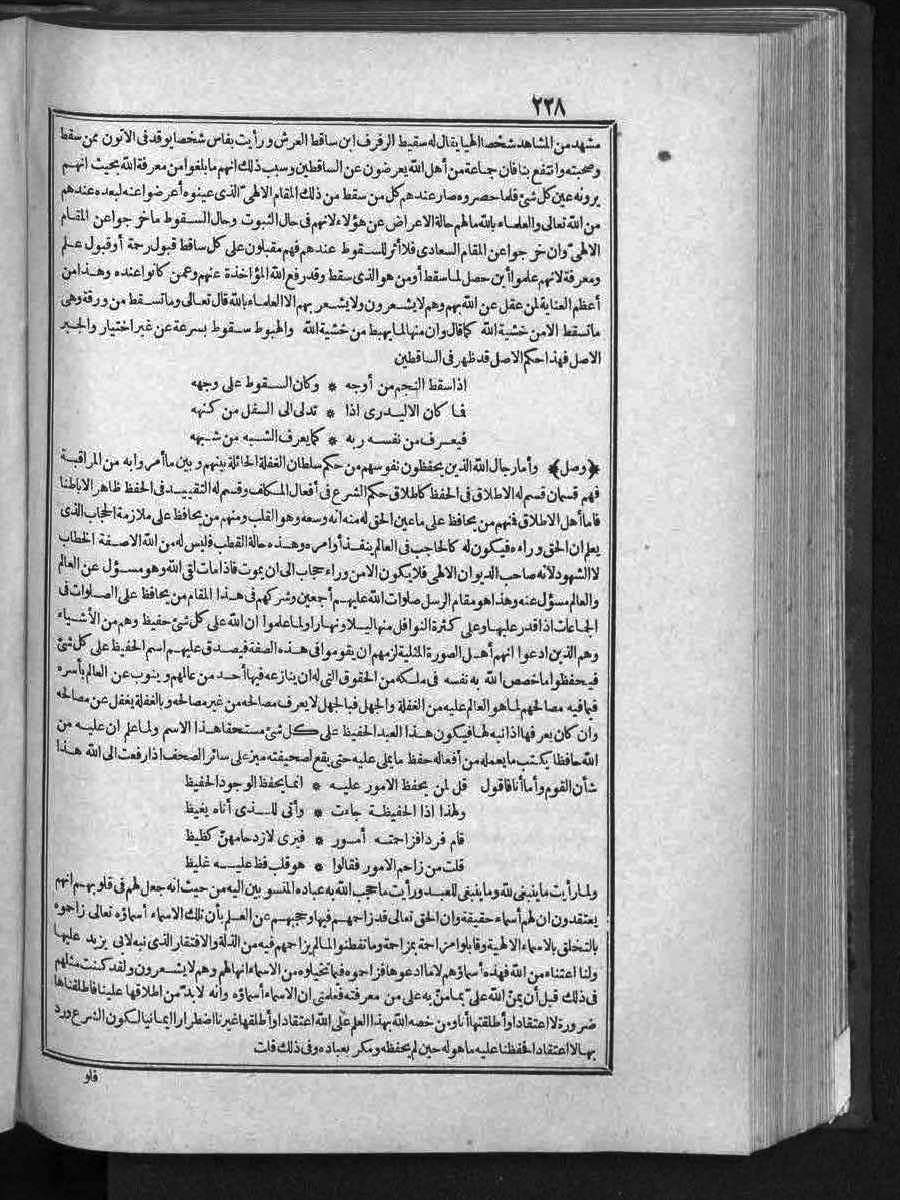 ٢٢٨
مشهد من المشاهد شخصا الهيا يقال له سقيط الرفرف ابن ساقط العرش ورأيت بفاس شخصا يوقد فى الاتون ممن سقط
وصحبته وانتفع بنا فان جماعة من أهل الله يعرضون عن الساقطين وسبب ذلك انهم ما بلغوا من معرفة الله بحيث انهم
يرونه عين كل شئ فلما حصروه صار عندهم كل من سقط من ذلك المقام الالهى الذى عينوه أعرضوا عنه لبعده عندهم
من الله تعالى والعلماء بالله مالهم حالة الاعراض عن هؤلاء لانهم فى حال الثبوت وحال السقوط ما خرجوا عن المقام
الالهى وان خرجوا عن المقام السعادى فلا أثر للسقوط عندهم فهم مقبلون على كل ساقط قبول رحمة أو قبول علم
ومعرفة لانهم علموا أين حصل لما سقط أومن هو الذى سقط وقد رفع الله المؤاخذة عنهم وعمن كانوا عنده وهذا من
أعظم العناية لمن عقل عن الله بهم وهم لا يشعرون ولا يشعر بهم الا العلماء بالله قال تعالى وما تسقط من ورقة وهى
ما تسقط الا من خشية الله كما قال وان منها لما يهبط من خشية الله والهبوط سقوط بسرعة عن غير اختيار والجبر
الاصل فهذا حكم الاصل قد ظهر فى الساقطين
اذا سقط النجم من أوجه * وكان السقوط على وجهه
فما كان الا ليدرى اذا * تدلى الى السفل من كنهه
فيعرف من نفسه ربه * كما يعرف الشبه من شبهه
﴿وصل﴾ وأما رجال الله الذين يحفظون نفوسهم من حكم سلطان الغفلة الحائلة بينهم وبين ما أمروا به من المراقبة
فهم قسمان قسم له الاطلاق فى الحفظ كاطلاق حكم الشرع فى أفعال المكلف وقسم له التقييد فى الحفظ ظاهر الاباطنا
فاما أهل الاطلاق فمنهم من يحافظ على ما عين الحق له منه انه وسعه وهو القلب ومنهم من يحافظ على ملازمة الحجاب الذى
يعلم ان الحق وراءه فيكون له كالحاجب فى العالم ينفذ أوامره وهذه حالة القطب فليس له من الله الا صفة الخطاب
لا الشهود لانه صاحب الديوان الالهى فلا يكون الا من وراء حجاب الى ان يموت فاذا مات لقى الله وهو مسؤل عن العالم
والعالم مسؤل عنه وهذا هو مقام الرسل صلوات الله عليهم أجعين وشركهم فى هذا المقام من يحافظ على الصلوات فى
الجماعات اذا قدر عليها وعلى كثرة النوافل منها ليلا ونهارا ولما علموا ان الله على كل شئ حفيظ وهم من الأشياء
وهم الذين ادعوا انهم أهل الصورة المثلية لزمهم ان يقوموا فى هذه الصفة فيصدق عليهم اسم الحفيظ على كل شئ
فيحفظوا ما خصص الله به نفسه فى ملكه من الحقوق التى له ان ينازعه فيها أحد من عالمهم وينوب عن العالم بأسره
فيما فيه مصالحهم لما هو العالم عليه من الغفلة والجهل فبالجهل لا يعرف مصالحه من غير مصالحه وبالغفلة يغفل عن مصالحه
وان كان يعرفها اذا نبه لها فيكون هذا العبد الحفيظ على كل شئ مستحقا هذا الاسم ولما علم ان عليه من
الله حافظا يكتب ما يعمله من أفعاله حفظ ما يملى عليه حتى يقع لصحيفته ميز على سائر الصحف اذا رفعت الى الله هذا
شأن القوم وأما أنا فأقول قل لمن يحفظ الامور عليه * انما يحفظ الوجود الحفيظ
ولهذا اذا الحفيظة جاءت * وأتى للذى أتاه يغيظ
قام فردا فزاحته أمور * فيرى لازدحامهن كظيظ
قلت من زاحم الامور فقالوا * هو قلب فظ عليه غليظ
ولما رأيت ما ينبغى لله وما ينبغى للعبد ورأيت ما حجب الله به عباده المنسوبين اليه من حيث انه جعل لهم فى قلوبهم انهم
يعتقدون ان لهم أسماء حقيقة وان الحق تعالى قد زاحمهم فيها وحجبهم عن العلم بأن تلك الاسماء أسماؤه تعالى زاحموه
بالتخلق بالاسماء الالهية وقابلوا مزاحة بمزاحة وما تفطنوا لما لم يزاحمهم فيه من الذلة والافتقار الذى نبه لابى يزيد عليها
ولنا اعتناء من الله فهذه أسماؤهم لا ما ادعوها فزاحموه فيما تخيلوه من الاسماء انها لهم وهم لا يشعرون ولقد كنت مثلهم
فى ذلك قبل أن يمن الله على بما من به على من معرفته فعلمنى ان الاسماء أسماؤه وانه لابد من اطلاقها علينا فاطلقناها
ضرورة لا اعتقادا وأطلقتها أنا ومن خصه الله بهذا العلم على الله اعتقادا وأطلقها غيرنا اضطرارا ايمانيا لكون الشرع ورد
بها لا اعتقادا فحفظنا عليه ما هو له حين لم يحفظه ومكر بعباده وفى ذلك قلت
فلو